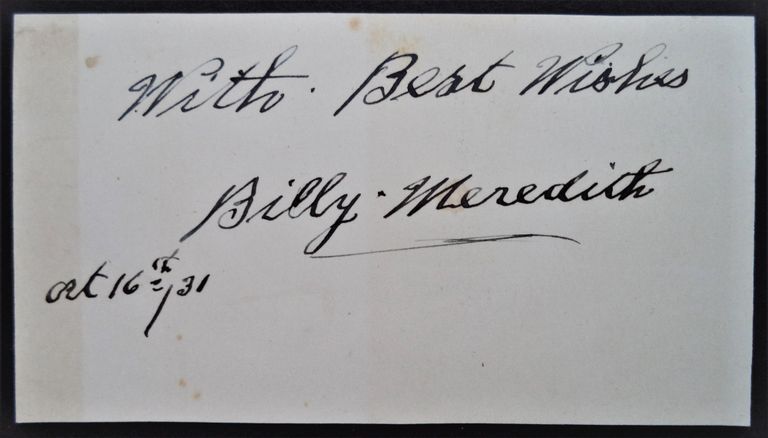 With. Best Wishes
Billy. Meredith
Oct 16th/31